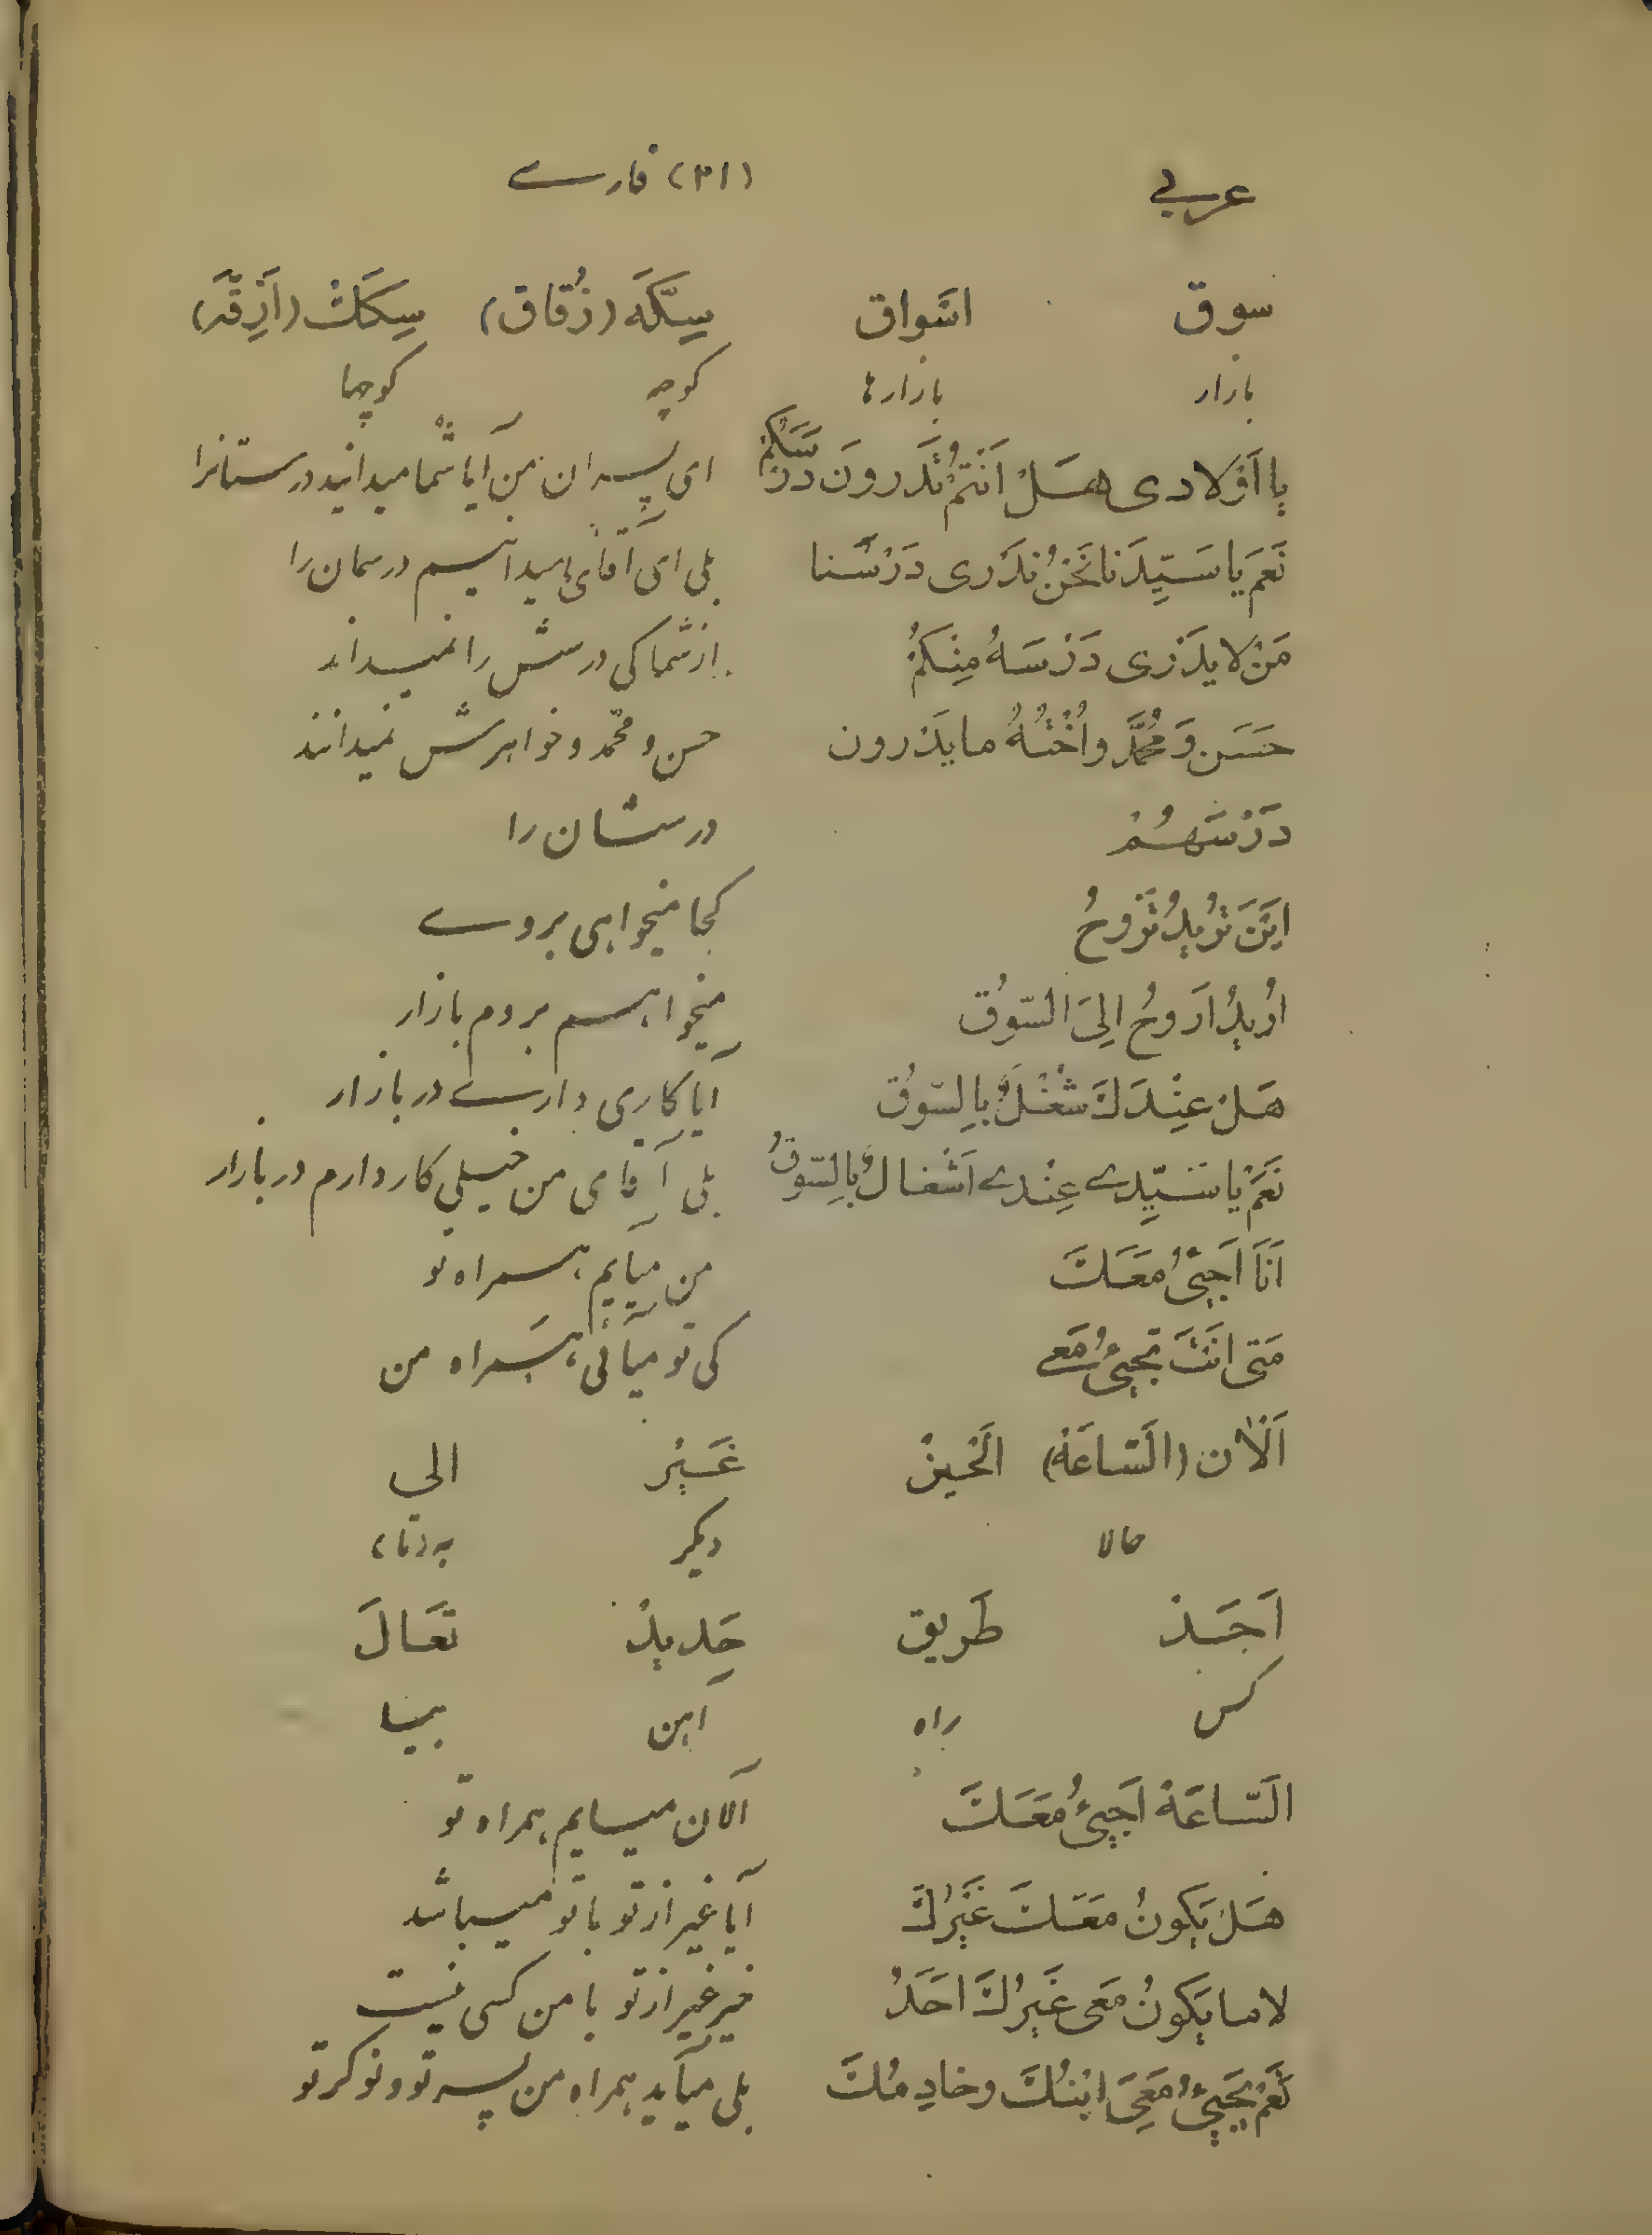 عربي (٣١) فارسے
سوق اَسْواق سِكَّة (زُقاق) سِكَكْ (اَزِقَّه)
بازار بازارها كوچه كوچها
يا اَوْلادی هَلْ اَنْتُمْ تَدْرونَ دَرْسَكُمْ ای پسران من آیا شما میدانید درستانرا
نَعَمْ يا سَيِّدَنا نَحْنُ نَدْری دَرْسَنا بلی ای آقای ما میدانیم درسمان را
مَنْ لا يدْری دَرْسَهُ مِنْكُمْ از شما کی درسش را نمیداند
حَسَن وَ مُحَمَّد و اُخْتُهُ ما يَدْرون حسن و محمّد و خواهرش نمیدانند
دَرْسَهُمْ درسشان را
اَيْنَ تُريدُ تَرُوحُ کجا میخواهی بروے
اُريدُ اَروحُ اِلیَ السّوُق میخواهم بروم بازار
هَلْ عِنْدَكَ شُغْلٌ بِالسّوُق آیا کاری دارے در بازار
نَعَمْ يا سَيِّدے عِنْدے اَشْغالٌ بِالسّوُق بلی آقای من خیلی کار دارم در بازار
اَنَا اَجيئُ مَعَكَ من میآیم همراه تو
مَتی اَنْتَ تَجيئُ مَعے کی تو میآئی همراه من
اَلْاٰن (السّاعَة) الْحينْ غَيْر الي
حالا دیگر به (تا)
اَحَدْ طَريق حَديدْ تَعَالَ
کس راه آهن بیا
السّاعَة اَجيئُ مَعَكَ الآن میایم همراه تو
هَلْ يَكونُ مَعَكَ غَيْرُكَ آیا غیر از تو با تو میباشد
لا ما يَكونُ مَعی غَيْرُكَ اَحَدٌ خیر غیر از تو با من کسی نیست
نَعَمْ يَجيئُ مَعِيَ ابْنُكَ و خادِمُكَ بلی میآید همراه من پسر تو و نوکر تو